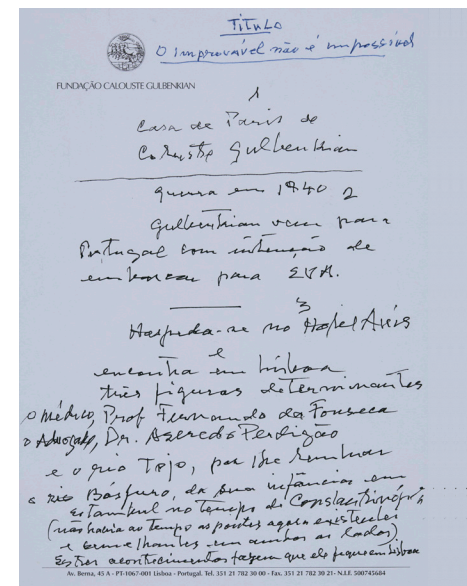 TÍTULO
O improvável não é impossível
FUNDAÇÃO CALOUSTE GULBENKIAN
1
Casa de Paris de
Calouste Gulbenkian
guerra em 1940 2
Gulbenkian vem para
Portugal com intenção de
embarcar para EUA.
3
Hospeda-se no Hotel Aviz
e
encontra em Lisboa
três figuras determinantes
o médico, Prof Fernando da Fonseca
o Advogado, Dr. Azeredo Perdigão
e o rio Tejo, por lhe lembrar
o rio Bósforo, da sua infância em
Istambul no tempo de Constantinopla
(não havia ao tempo as pontes agora existentes
e semelhantes em ambos os lados)
Estes acontecimentos fazem que ele fique em Lisboa
Av. Berna, 45 A - PT1067-001 Lisboa - Portugal. Tel. 351 21 782 30 00 - Fax. 351 21 782 30 21- N.I.F. 500745684